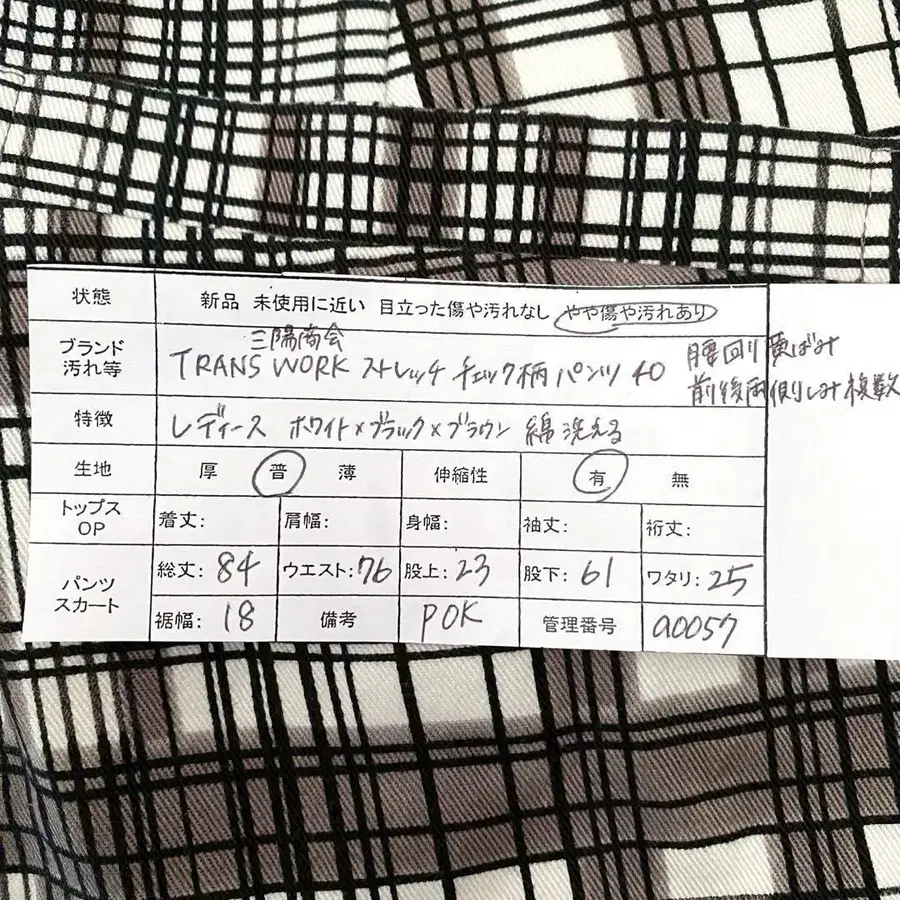 状態 新品 未使用に近い 目立った傷や汚れなし やや傷や汚れあり
三陽商会
ブランド 汚れ等 TRANS WORK ストレッチ チェック柄 パンツ 40
腰回り 黄ばみ
前後両側しみ複数
特徴 レディース ホワイト×ブラック×ブラウン 綿 洗える
生地 厚 普 薄 伸縮性 有 無
トップス OP 着丈: 肩幅: 身幅: 袖丈: 裄丈:
パンツ スカート 総丈: 84 ウエスト: 76 股上: 23 股下: 61 ワタリ: 25
裾幅: 18 備考 POK 管理番号 a0057